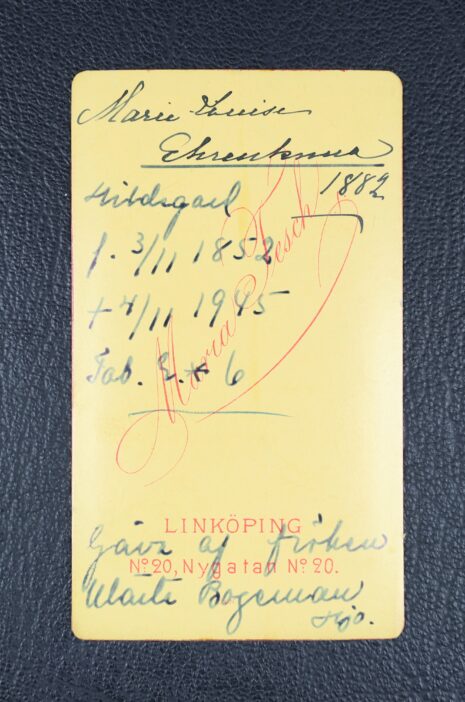 Marie Louise
Ehrenkrona
1882
Hildegard
f. 3/11 1852
+ 4/11 1945
Tab. 6
Maria Tesch
LINKÖPING
Gåva af fröken
No 20, Nygatan No 20.
Märta Bogeman
Hjo.